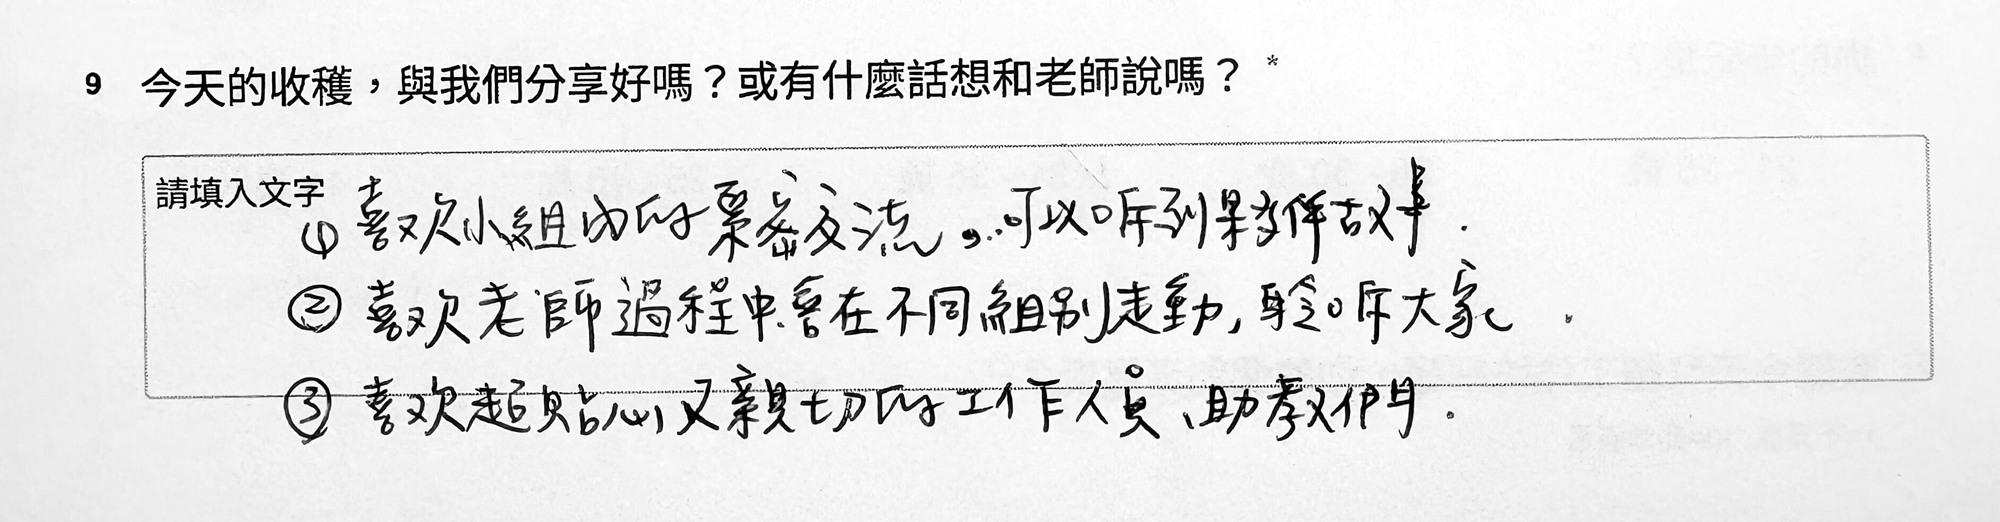 9 今天的收穫，與我們分享好嗎？或有什麼話想和老師說嗎？ *
請填入文字
① 喜欢小組內的緊密交流。可以听到夥伴故事.
② 喜欢老師過程中會在不同組別走動, 聆听大家.
③ 喜欢超貼心又親切的工作人員、助教們。